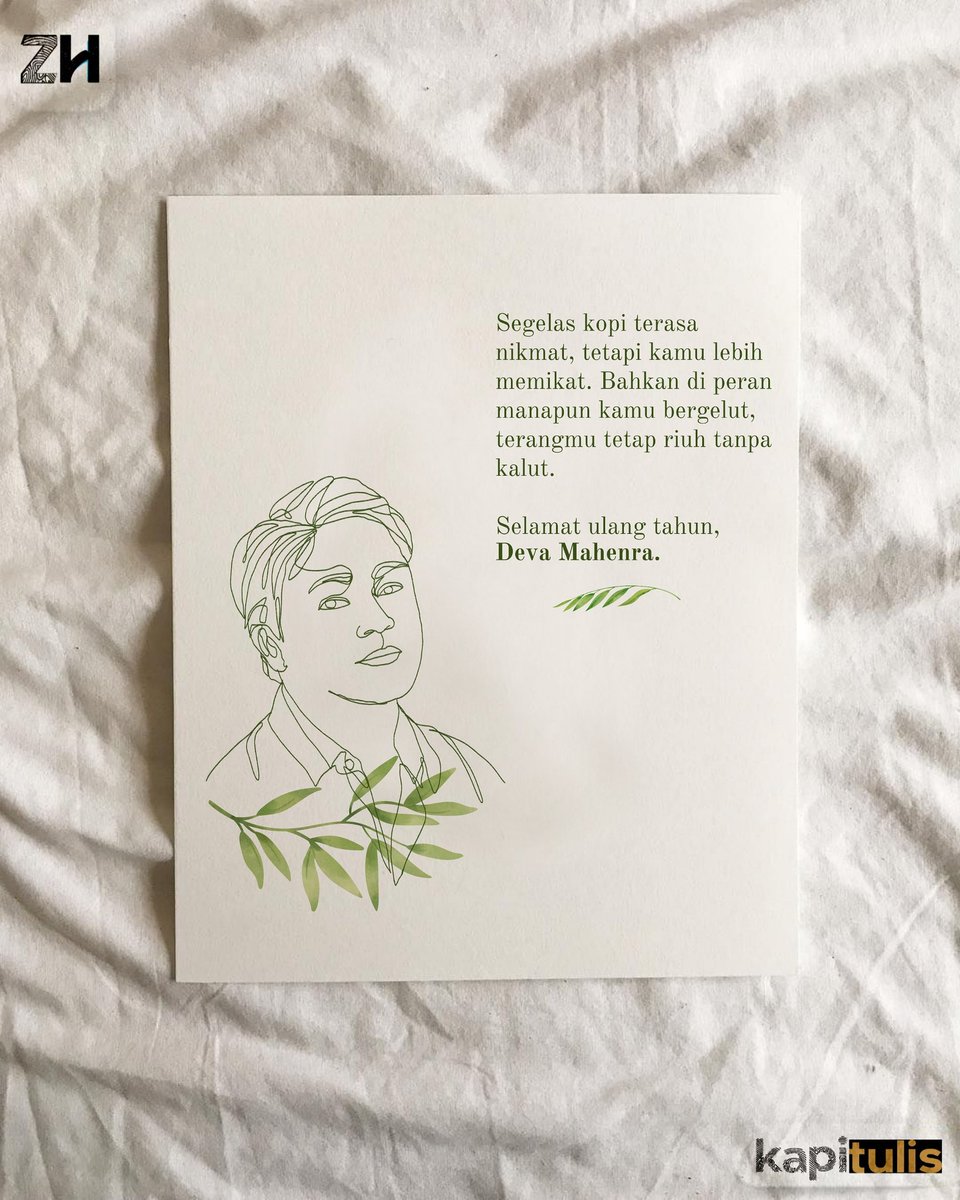 ZH
Segelas kopi terasa
nikmat, tetapi kamu lebih
memikat. Bahkan di peran
manapun kamu bergelut,
terangmu tetap riuh tanpa
kalut.
Selamat ulang tahun,
Deva Mahenra.
kapitulis